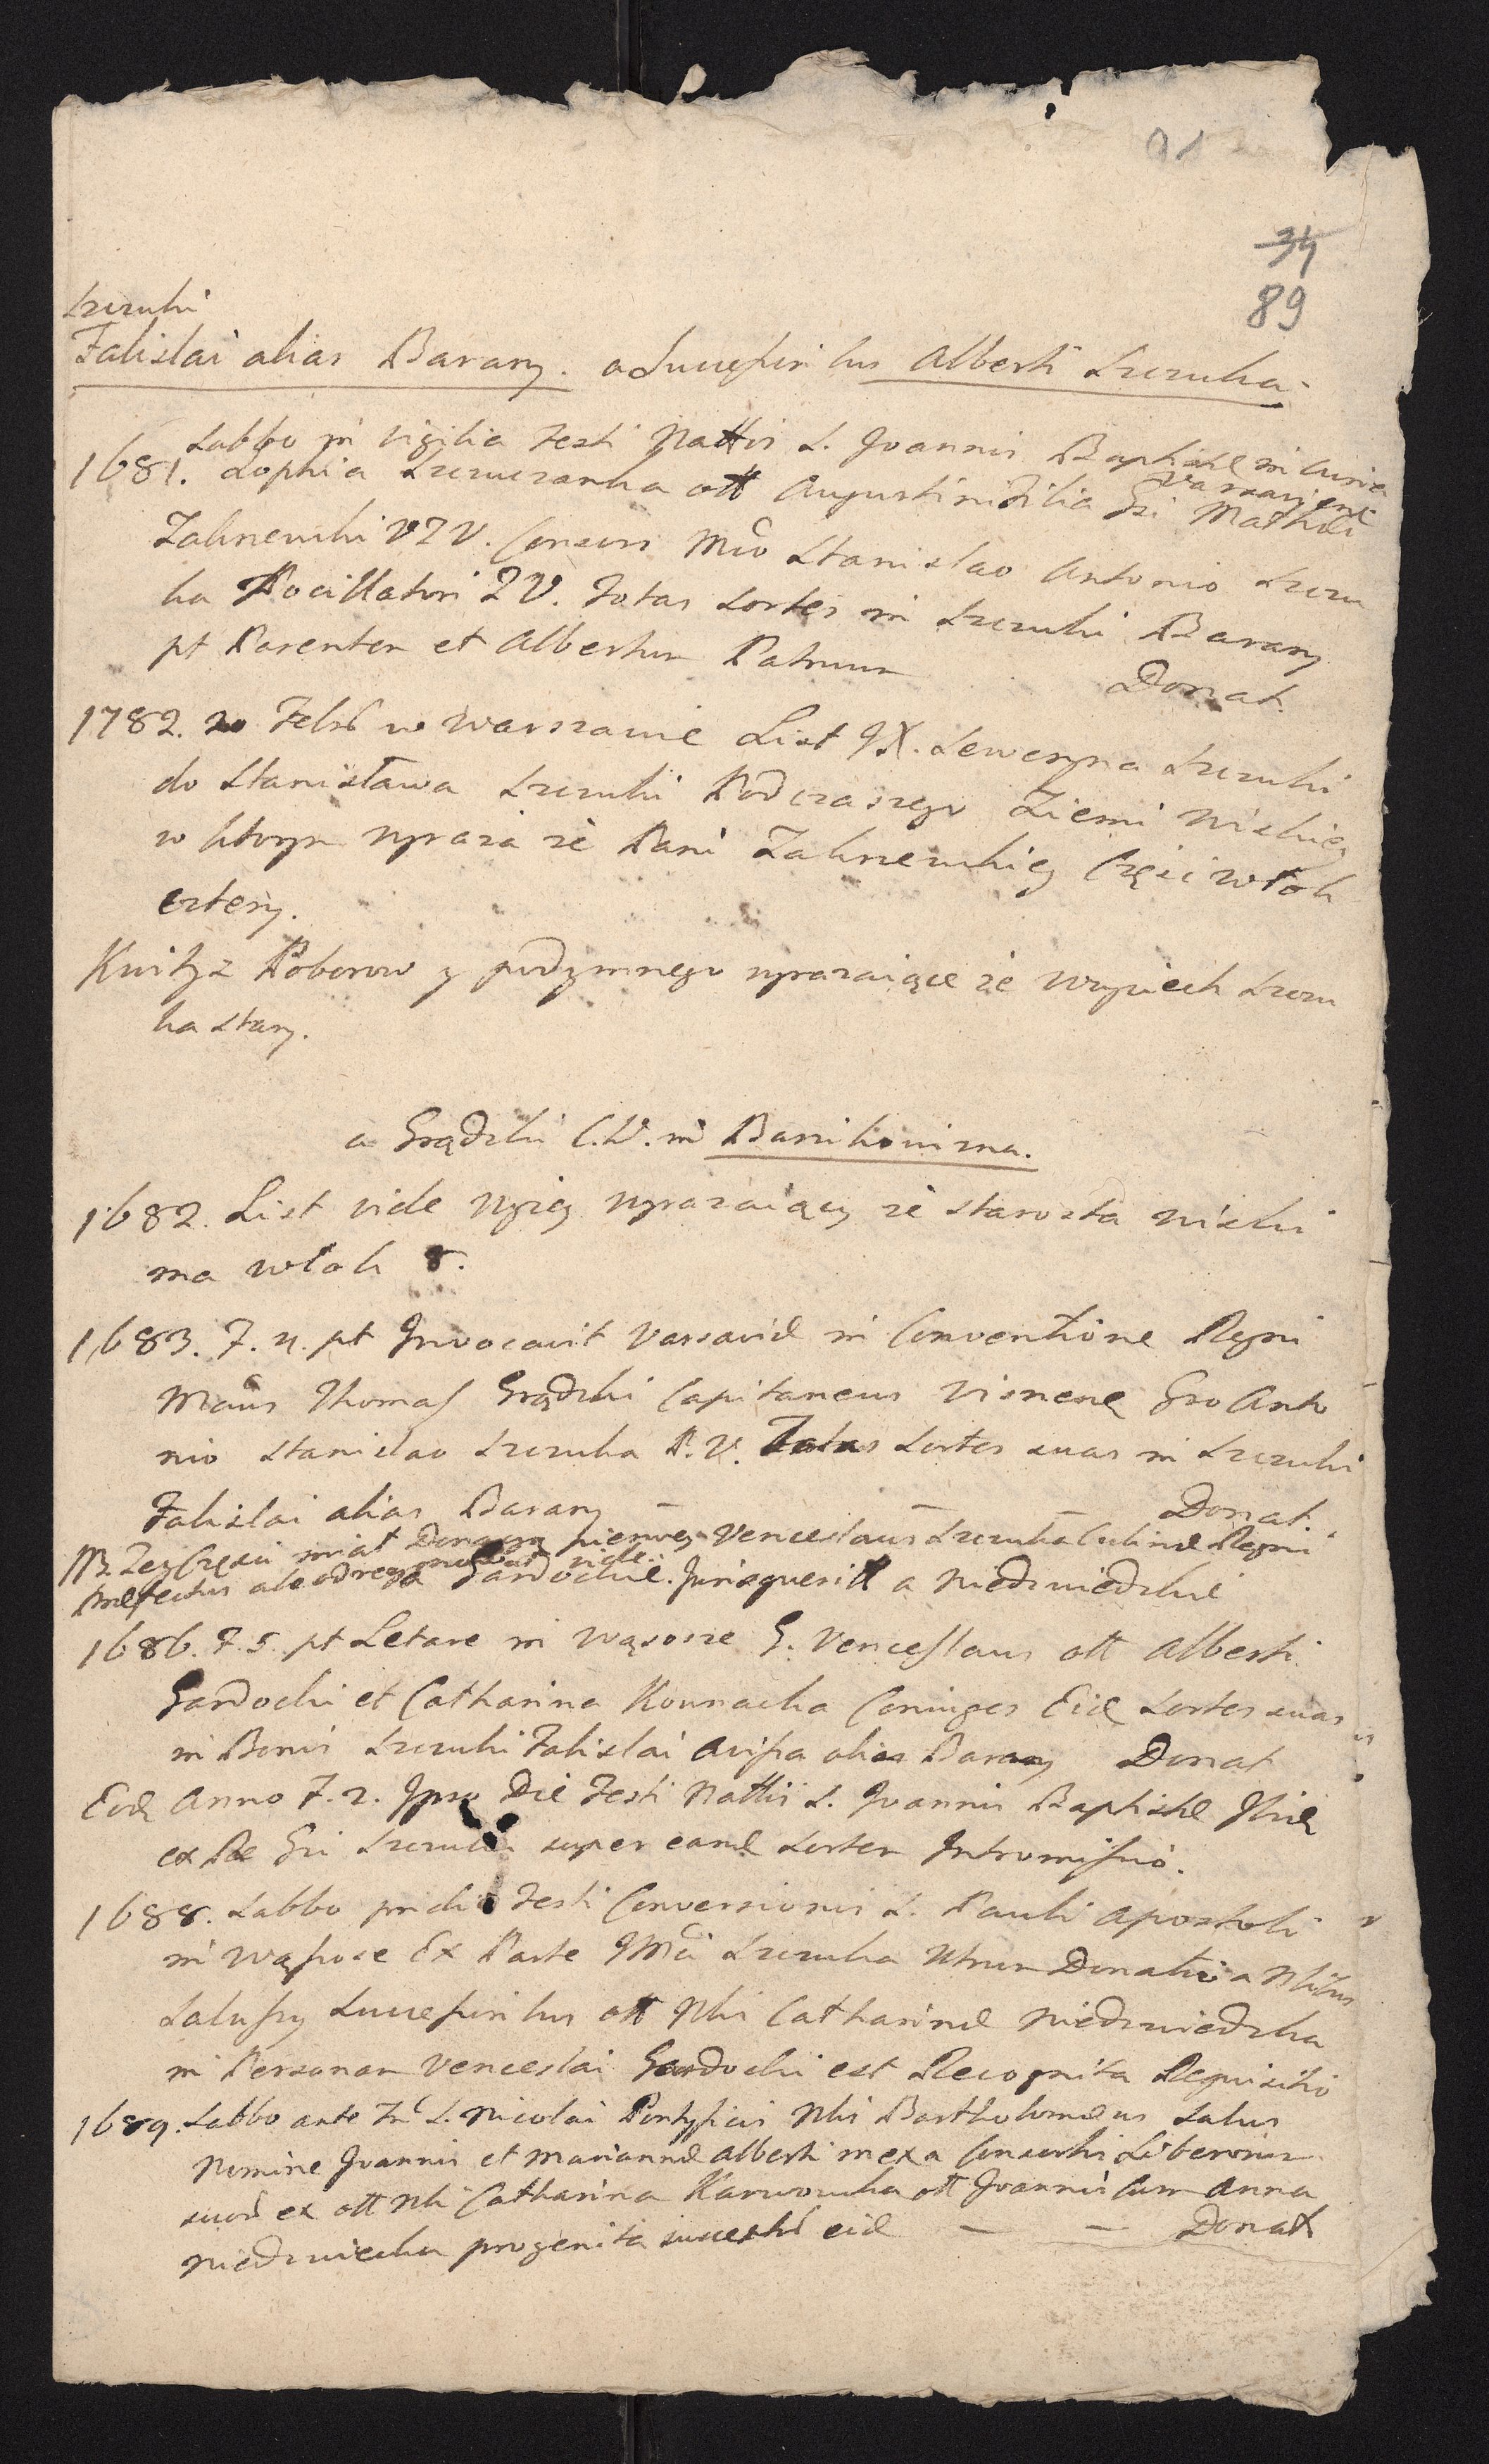 91
34
89
Szczuki
Falislai alias Barany. a Successoribus Alberti Szczuka.
Sabbo in vigilia Festi Nattis S. Joannis Baptistæ in Curia
Varsaviens
1681. Sophia Szczuczanka ott Augustini Filia Gsi Mathei
Zakrzewski V T V. Consors Mco Stanislao Antonio Szczu
ka Pocillatori T V. Totas Sortes in Szczuki Barany
pt Parentem et Albertum Patruum Donat.
1782. 20 Febr w Warszawie List JX. Seweryna Szczuki
do Stanisława Szczuki Podczaszego Ziemi Wiskiey
w ktorym wyraża że Pani Zakrzewskiey Części włok
cztery.
Kwity z Poborow y podymnego wyrazaiące że Woyciech Szczu
ka stary.
a Grądzki C.V. in Barrikowizna.
1682. List vide wyżey wyrazaiący że starosta wiski
ma włok 8.
1683. F. 4. pt Invocavit Varsaviæ in Conventione Regni
Mcus Thomas Grądzki Capitaneus Visnensis Gso Anto
nio Stanislao Szczuka P. V. Totas Sortes suas in Szczuki
Falislai alias Barany — — — Donat.
NB. Tey Części miał Donacyą pierwey Venceslaus Szczuka Culinæ Regni
Præfectus ale od niego vide Gardockie. Jurisquesitt a Niedzwiedzkie
1686. F. 5. pt Letare in Wąsosze G. Venceslaus ott Alberti
Gardocki et Catharina Konnacka Coniuges Eid Sortes suas
in Bonis Szczuki Falislai Avissa alias Barany Donat
Eod Anno F. 2. Ipso Die Festi Nattis S. Joannis Baptistæ Ibid
ex Re Gsi Szczuka super eand Sortem Intromissio.
1688. Sabbo pridie Festi Conversionis S. Pauli Apostoli
in Wąsosze Ex Parte JMci Szczuka Utrum Donatio a Nbilus
Salussy Successoribus ott Nbis Catharinæ Niedzwiedzka
in Personam Venceslai Gardocki est Recognita Requisitio
1689. Sabbo ante Fm S. Nicolai Pontificis Nbis Bartholomæus Salus
Nomine Joannis et Mariannæ Alberti in ex a Consorti Liberorum
suor ex ott Nbi Catharina Karwowska ott Joannis cum Anna
Niedzwiecka progenita sucestr eid — — Donat